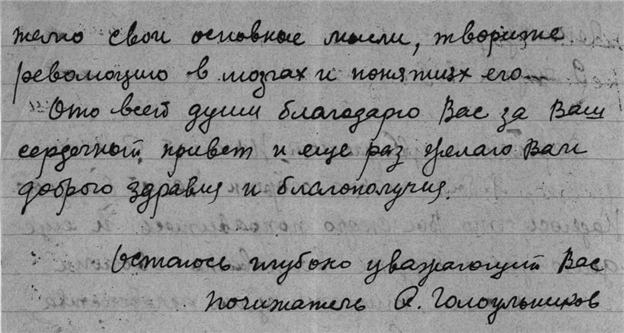 телю свои основные мысли, творите
революцию в мозгах и понятиях его.
Ото всей души благодарю Вас за Ваш
сердечный привет и еще раз желаю Вам
доброго здравия и благополучия.
Остаюсь глубоко уважающий Вас
почитатель